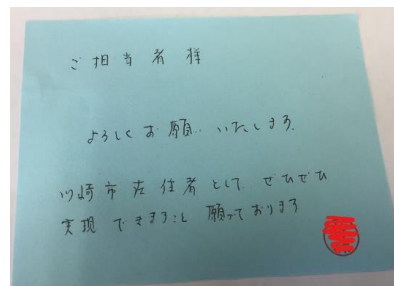 ご担当者様
よろしくお願いいたします。
川崎市在住者として ぜひぜひ
実現できますこと願っております